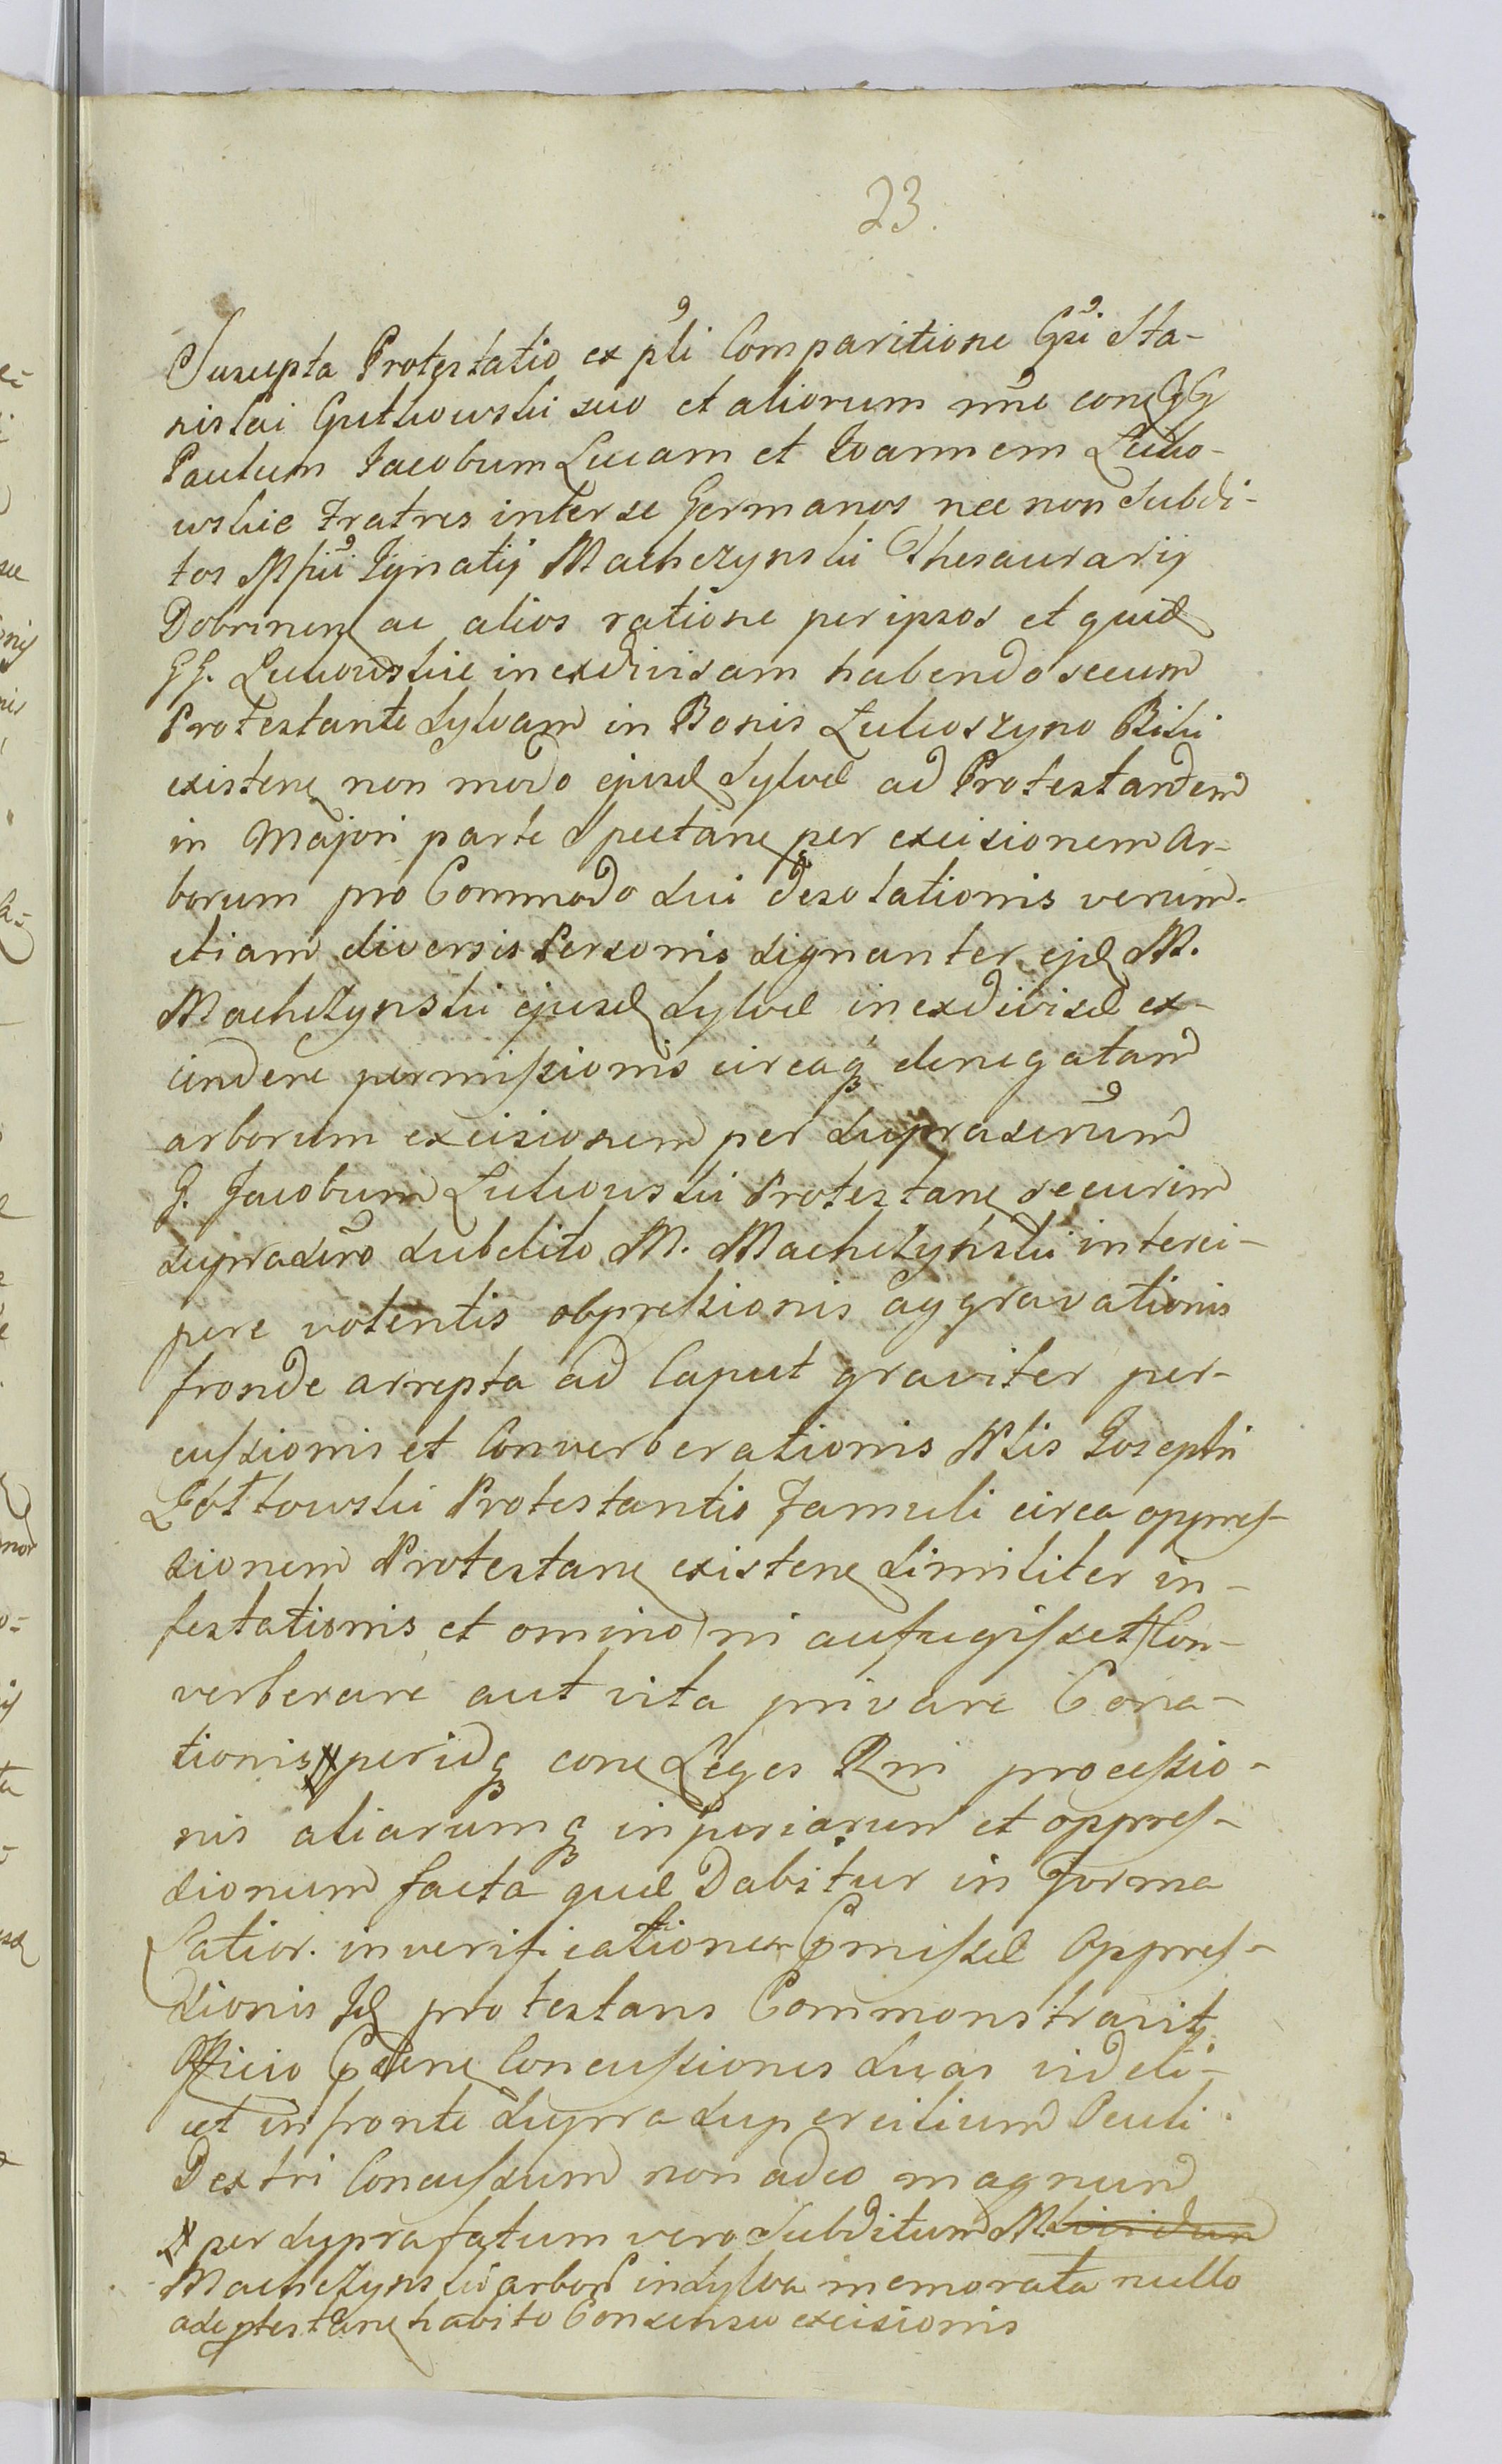 23.
Suscepta Protestatio ex pñli Comparitione Gsi Sta-
nislai Gutkowski suo et aliorum nñe conGG
Paulum Jacobum Lucam et Joannem Lutko-
wskie Fratres inter se Germanos nec non Subdi-
tos Mfici Ignatij Machczynski Thesaurarij
Dobrinen ac alios ratione per ipsos et quid
GG. Lutkowskie inexdivisam habendo secum
Protestante Sylvam in Bonis Lutkoszyno Bilki
existen non modo ejusd Sylvæ ad Protestandem
in Majori parte Spectan per excisionem Ar-
borum pro Commodo sui desolationis verum-
etiam diversis Personis signanter ejd M.
Machczynski ejusd Sylvæ inexdivisæ ex-
cindere permissionis circaq denegatam
arborum excisionem per suprascrum
G. Jacobum Lutkowski Protestan securim
suprascro subdito M. Machczynski interci-
pere volentis obpressionis aggravationis
fronde arrepta ad Caput graviter per-
cussionis et Converberationis Nlis Josephi
Żółtowski Protestantis Famuli circa oppres-
sionem Protestan existen similiter in-
festationis et omino ni aufugisset Con-
verberare aut vita privare Cona-
tionis # peridq con Leges Rni processio-
nis aliarumq injuriarum et oppres-
sionum facta quæ Dabitur in Forma
Latior. in verificationem pmissæ Oppres-
sionis Id protestans Commonstravit
Officio Pden Concussiones duas videli-
cet in fronte supra supercilium Oculi
Dextri Concussum non adeo magnum
# per suprafatum vero Subditum M. lividum
Machczynski arbor in Sylva memorata nullo
a se ptestan habito Consensu excisionis